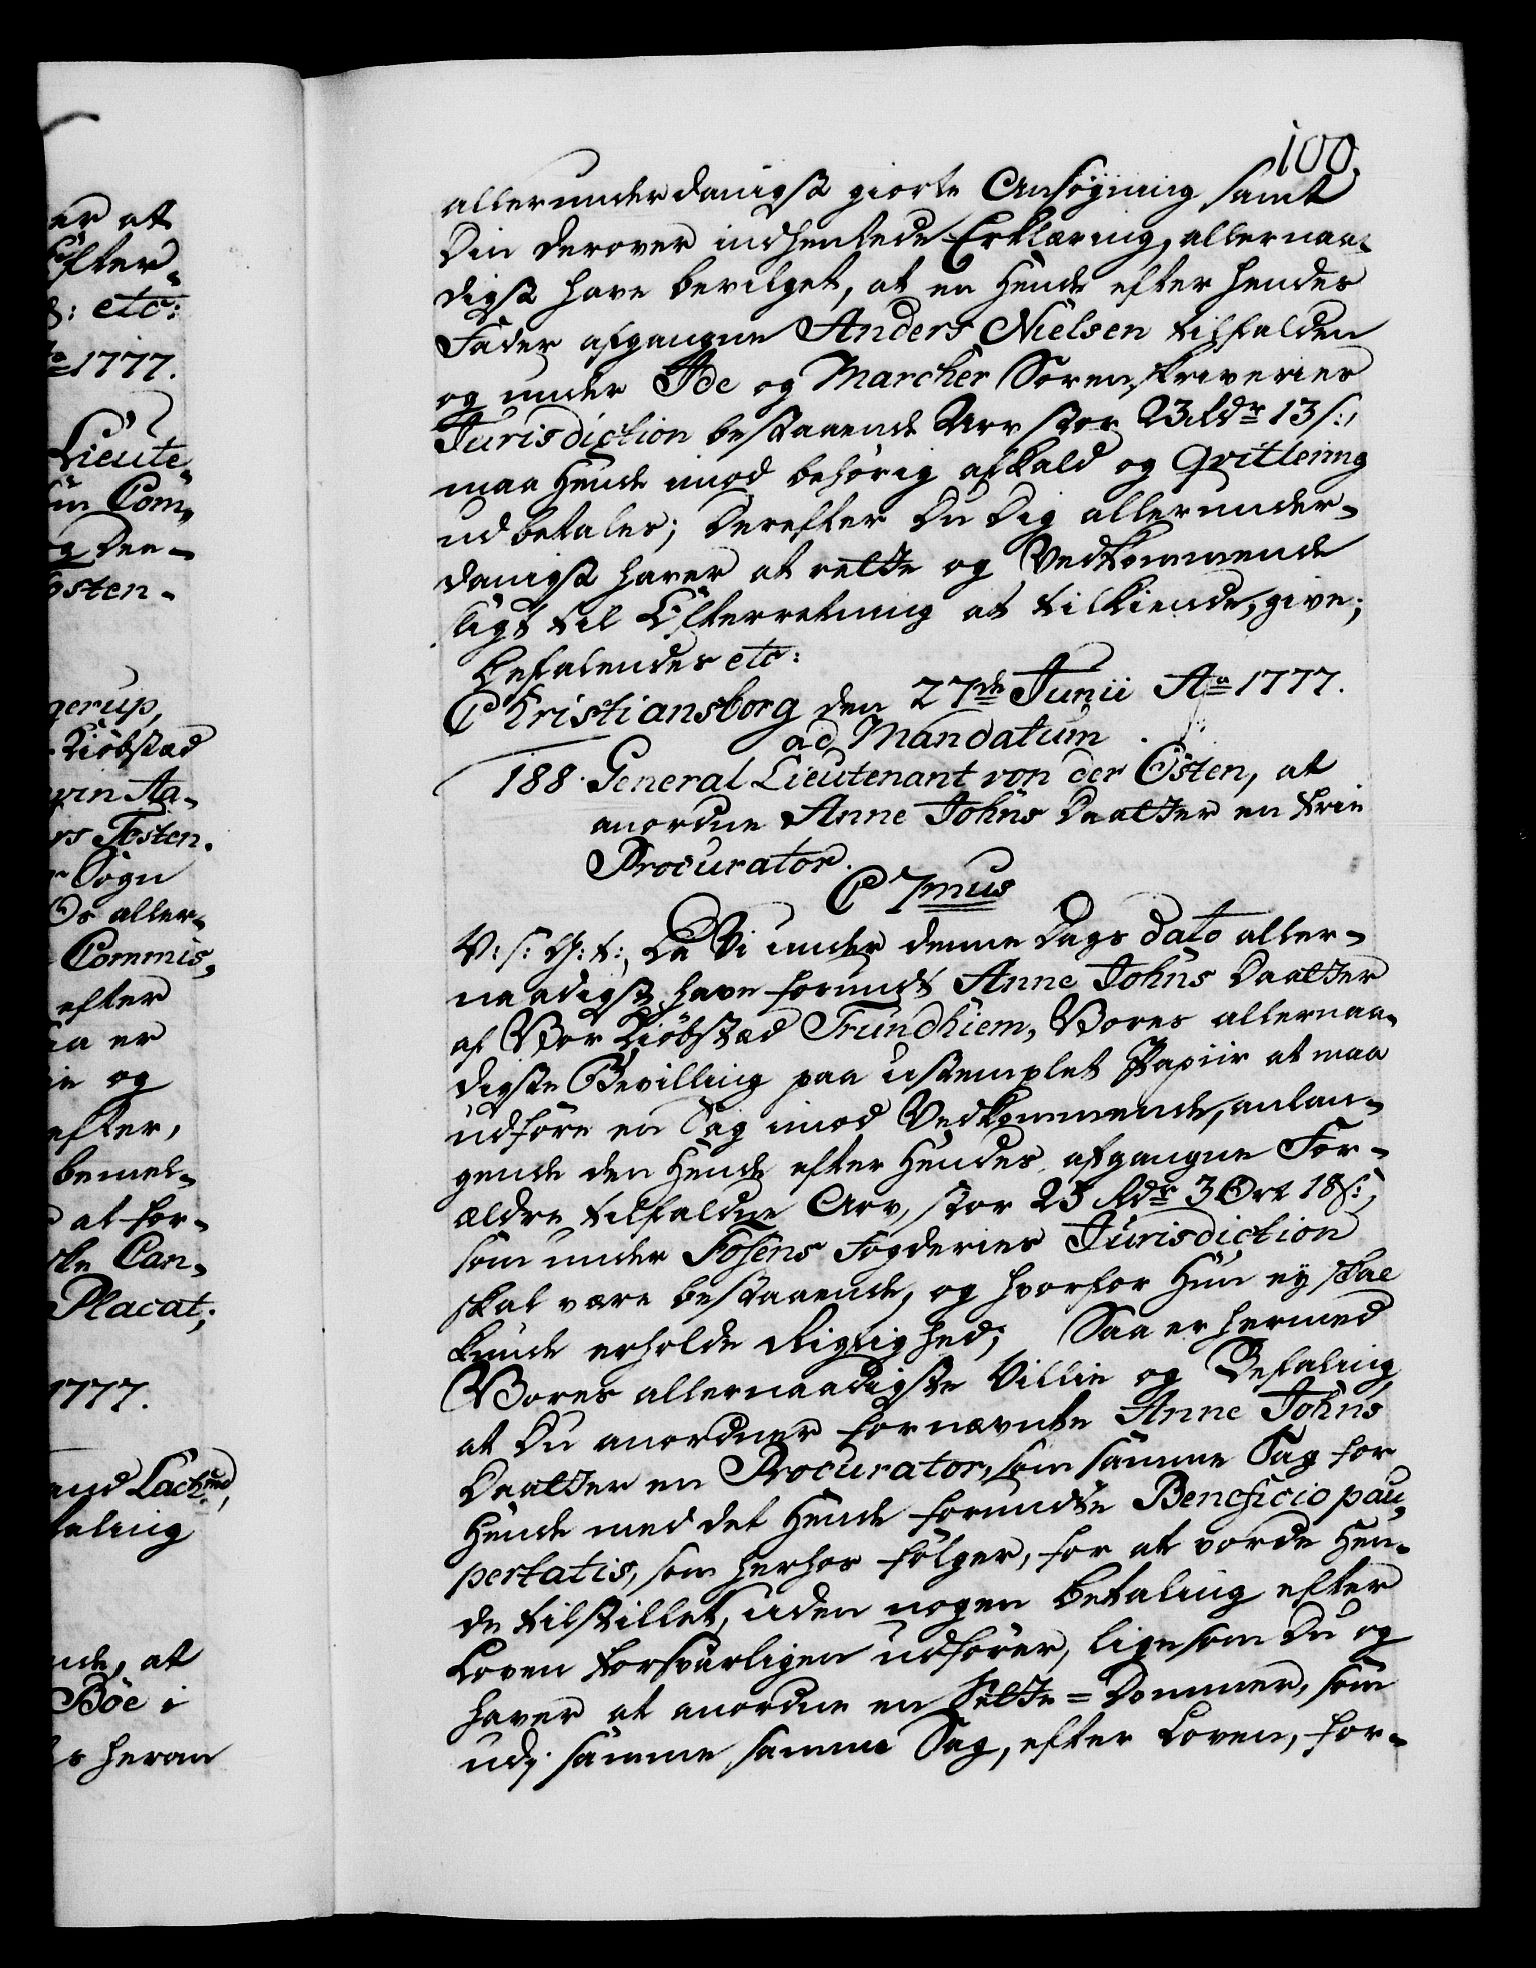 er at
Efter-
8: etc:
to 1777.
Lieute-
Com-
og Den-
Osten-
gerup,
Kiöbstæd
Aa-
rs Tosten.
Sogn
Os aller-
Commis-
efter
er
og
efter,
bemel-
at for-
Can-
Placat;
1777.
faling
nde, at
Böe i
heran
100.
allerunderdanigst giorte Ansøgning samt
Din derover indhentede Erklæring, allernaa-
digst have bevilget, at en Hende efter hendes
Fader afgangne Anders Nielsen tilfalden
og under Ide og Marcker Sorenskriveries
Jurisdiction bestaaende Arv stor 23 Rdr 13 s:,
maa Hende imod behörig afkald og Qvittering
udbetales; Derefter Du Dig allerunder-
danigst haver at rette og Vedkommende
sligt til Efterretning at tilkiende give;
Befalendes etc:
Christiansborg den 27de Junii Ao 1777.
ad Mandatum
188. General Lieutenant von der Osten, at
anordne Anne Johns Daatter en frie
Procurator.
C 7mus
V: s: G: t:, Da Vi under denne Dags dato aller-
naadigst have forundt Anne Johns Daatter
af Vor Kiöbstæd Trundhiem, Vores allernaa-
digste Bevilling paa ustemplet Papiir at maa
udföre en Sag imod Vedkommende, anlan-
gende den Hende efter Hendes afgangne For-
ældre tilfaldne Arv, stor 25 Rdr 3 Ort 18 s:,
som under Fosens Fogderies Jurisdiction
skal være bestaaende, og hvorfor Hun ey skal
kunde erholde Rigtighed; Saa er hermed
Vores allernaadigste Villie og Befaling,
at Du anordner fornævnte Anne Johns
Daatter en Procurator, som samme Sag for
Hende med det Hende forundte Beneficio pau-
pertatis, som herhos følger, for at vorde Hen-
de tilstillet, uden nogen Betaling efter
Loven forsvarligen udförer, ligesom Du og
haver at anordne en Sette-Dommer, som
udj samme samme Sag, efter Loven, for-